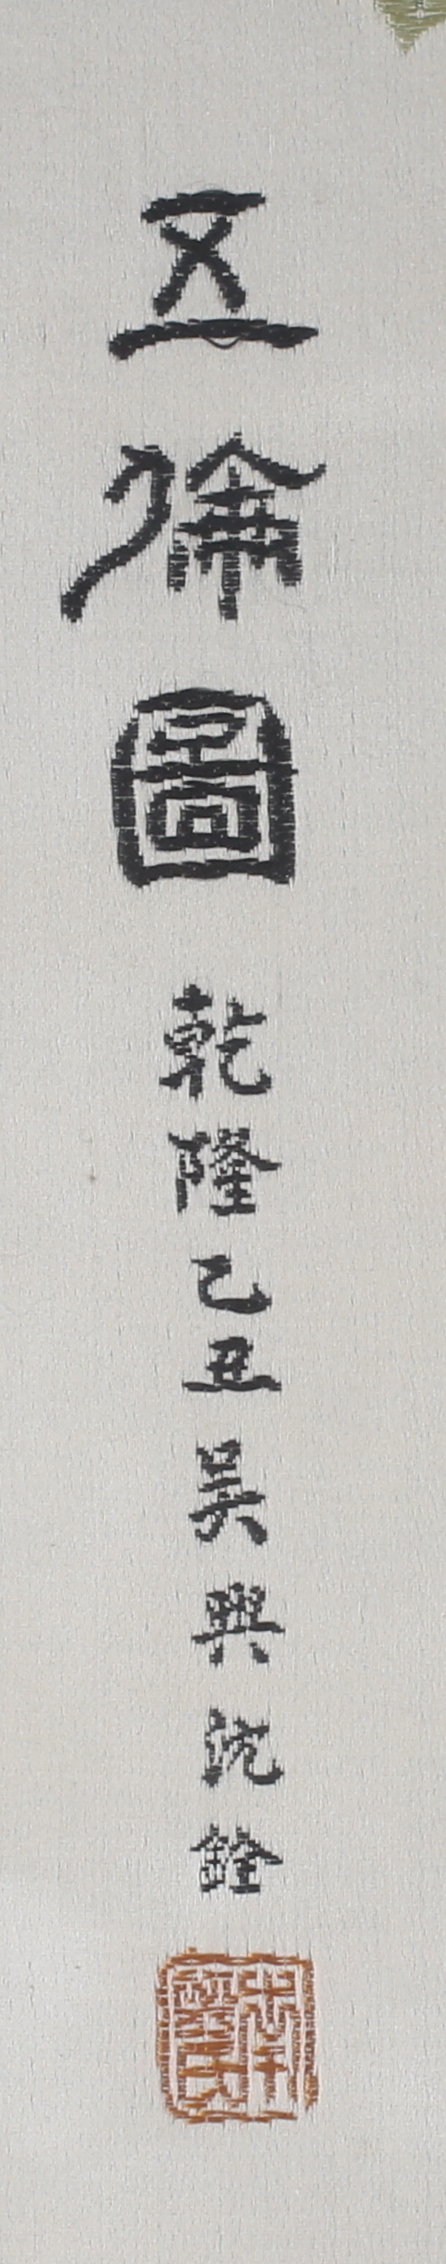 五倫圖 乾隆乙丑吴興沈銓